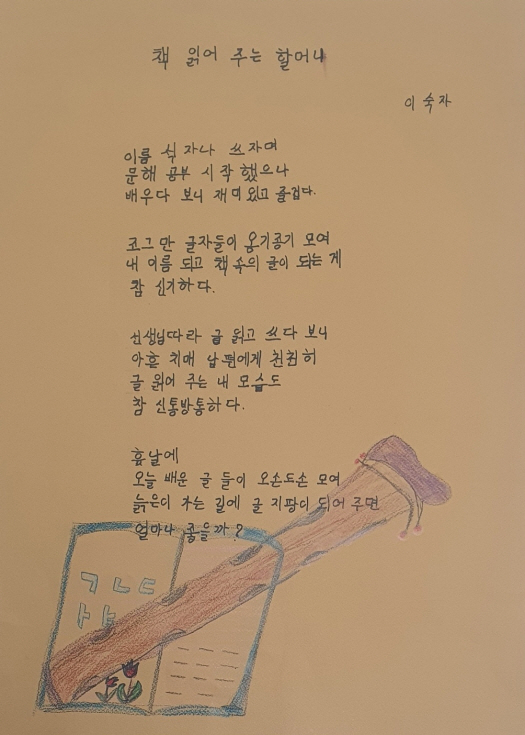 책 읽어 주는 할머니
이숙자
이름 석 자나 쓰자며
문해 공부 시작 했으나
배우다 보니 재미있고 즐겁다.
코그만 글자들이 옹기종기 모여
내 이름 되고 책 속의 글이 되는 게
참 신기하다.
선생님따라 글 읽고 쓰다 보니
아흔 치매 남편에게 천천히
글 읽어 주는 내 모습도
참 신통방통하다.
훗날에
오늘 배운 글 들이 오손도손 모여
늙은이 가는 길에 글 지팡이 되어 주면
얼마나 좋을까?
ㄱㄴㄷ
ㅏㅑ